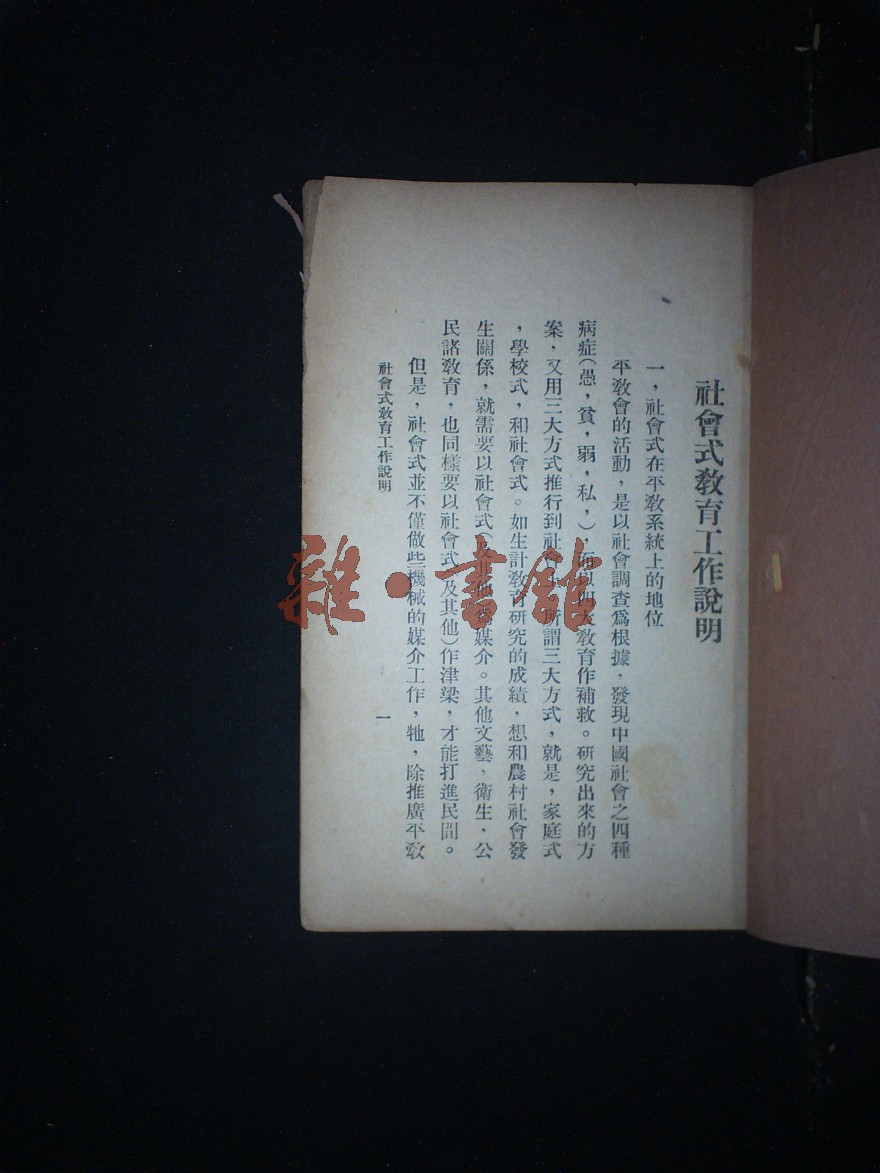 社會式教育工作說明
一，社會式在平教系統上的地位
平教會的活動，是以社會調查爲根據，發現中國社會之四種
病症（愚，貧，弱，私，），而以四大教育作補救。研究出來的方
案，又用三大方式推行到社會上。所謂三大方式，就是，家庭式
，學校式，和社會式。如生計教育研究的成績，想和農村社會發
生關係，就需要以社會式（及其他）爲媒介。其他文藝，衛生，公
民諸教育，也同樣要以社會式（及其他）作津梁，才能打進民間。
但是，社會式並不僅做些機械的媒介工作，牠，除推廣平教
社會式教育工作說明
一
雜·書館